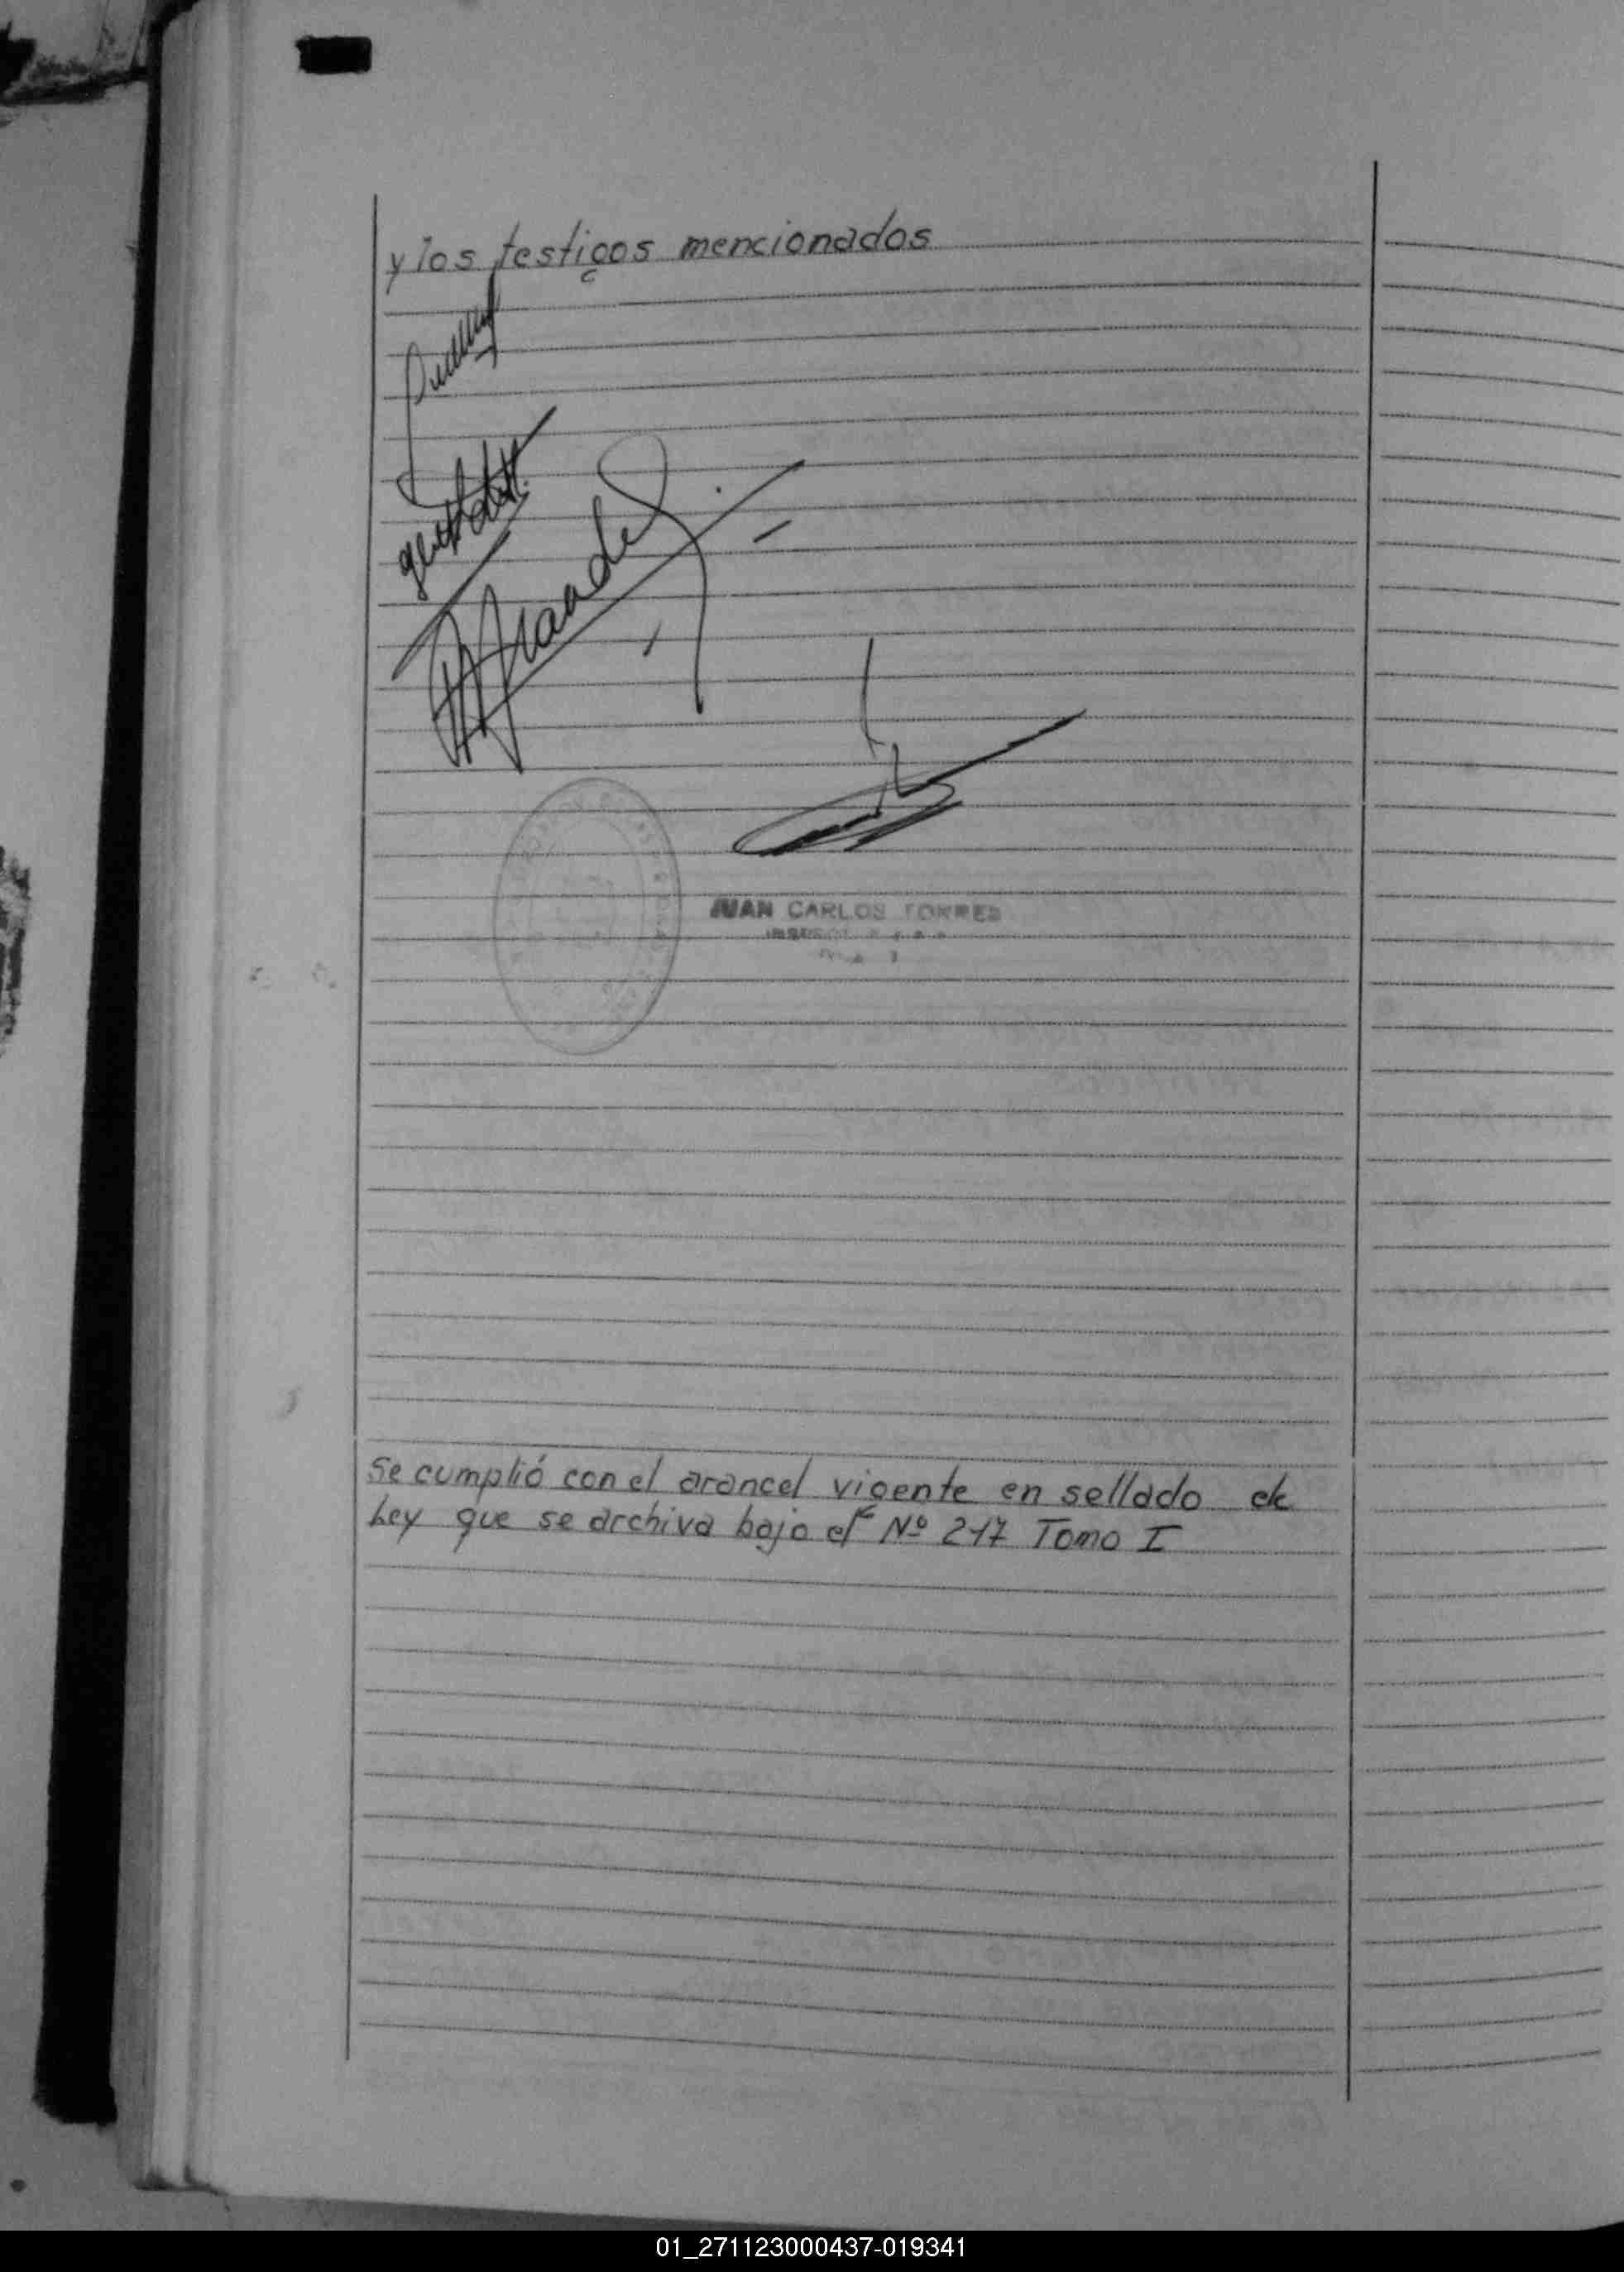 y los testigos mencionados
JUAN CARLOS TORRES
Se cumplió con el arancel vigente en sellado de
Ley que se archiva bajo el Nº 217 Tomo I
01_271123000437-019341